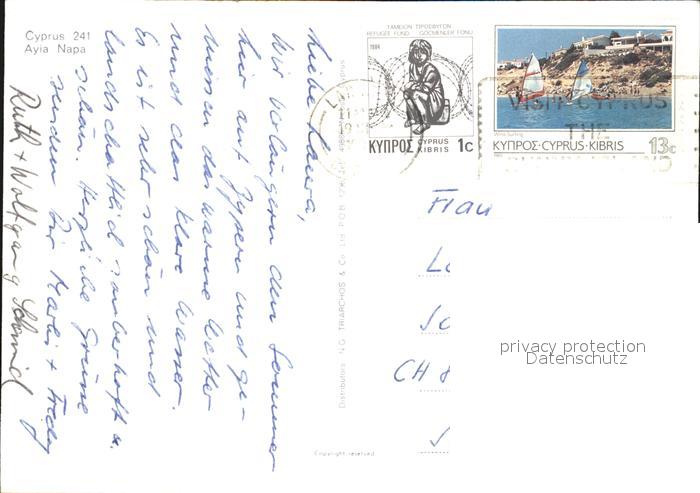 Cyprus 241
Ayia Napa
Liebe Laura,
Wir verlängern den Sommer
hier auf Zypern und ge-
niessen das warme Wetter
und das klare Wasser.
Es ist sehr schön und
landschaftlich zauberhaft u.
schön. Herzliche Grüsse
senden Dir Marlis + Fredy
Ruth + Wolfgang Schmid
Distributors N.G. TRIARCHOS & Co. Ltd P.O.B.
Copyright reserved
ΤΑΜΕΙΟΝ ΠΡΟΣΦΥΓΩΝ
REFUGEE FUND GÖÇMENLER FONU
1984
ΚΥΠΡΟΣ CYPRUS KIBRIS 1c
Wind Surfing
ΚΥΠΡΟΣ·CYPRUS·KIBRIS 13c
1985
VISIT CYPRUS
THE
Frau
CH 8
privacy protection
Datenschutz